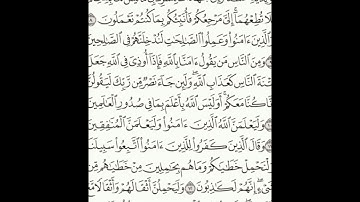 لَا تُطِعْهُمَآ إِلَىَّ مَرْجِعُكُمْ فَأُنَبِّئُكُم بِمَا كُنتُمْ تَعْمَلُونَ
وَٱلَّذِينَ ءَامَنُوا۟ وَعَمِلُوا۟ ٱلصَّٰلِحَٰتِ لَنُدْخِلَنَّهُمْ فِى ٱلصَّٰلِحِينَ
وَمِنَ ٱلنَّاسِ مَن يَقُولُ ءَامَنَّا بِٱللَّهِ فَإِذَآ أُوذِىَ فِى ٱللَّهِ جَعَلَ
فِتْنَةَ ٱلنَّاسِ كَعَذَابِ ٱللَّهِ وَلَئِن جَآءَ نَصْرٌ مِّن رَّبِّكَ لَيَقُولُنَّ
إِنَّا كُنَّا مَعَكُمْ أَوَلَيْسَ ٱللَّهُ بِأَعْلَمَ بِمَا فِى صُدُورِ ٱلْعَٰلَمِينَ
وَلَيَعْلَمَنَّ ٱللَّهُ ٱلَّذِينَ ءَامَنُوا۟ وَلَيَعْلَمَنَّ ٱلْمُنَٰفِقِينَ
وَقَالَ ٱلَّذِينَ كَفَرُوا۟ لِلَّذِينَ ءَامَنُوا۟ ٱتَّبِعُوا۟ سَبِيلَنَا
وَلْنَحْمِلْ خَطَٰيَٰكُمْ وَمَا هُم بِحَٰمِلِينَ مِنْ خَطَٰيَٰهُم مِّن
شَىْءٍ إِنَّهُمْ لَكَٰذِبُونَ ١٢ وَلَيَحْمِلُنَّ أَثْقَالَهُمْ وَأَثْقَالًا مَّعَ